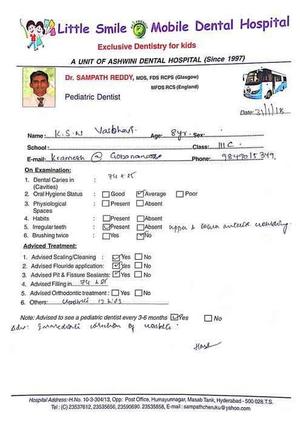 Little Smile Mobile Dental Hospital
Exclusive Dentistry for kids
A UNIT OF ASHWINI DENTAL HOSPITAL (Since 1997)
Dr. SAMPATH REDDY, MDS, FDS RCPS (Glasgow)
MFDS RCS (England)
Pediatric Dentist
Date: 31/1/18
Name: K.S.N Vaibhavi Age: 8yr. Sex:
School: Class: III C
E-mail: Phone:
On Examination:
1. Dental Caries in : 74 & 85
(Cavities)
2. Oral Hygiene Status : Good Average Poor
3. Physiological : Present Absent
Spaces
4. Habits : Present Absent
5. Irregular teeth : Present Absent upper & lower anterior crowding
6. Brushing twice : Yes No
Adviced Treatment:
1. Advised Scaling/Cleaning : Yes No
2. Advised Flouride application: Yes No
3. Advised Pit & Fissure Sealants: Yes No
4. Advised Filling in 74 & 85
5. Advised Orthodontic treatment : Yes No
6. Others:
Note: Advised to see a pediatric dentist every 3-6 months Yes No
Adv: Immediate
Hospital Address: H.No. 10-3-304/13, Opp: Post Office, Humayunnagar, Masab Tank, Hyderabad - 500 028 T.S.
Tel: (C) 23537612, 23535656, 23590690. 23535858, E-mail : sampathcheruku@yahoo.com